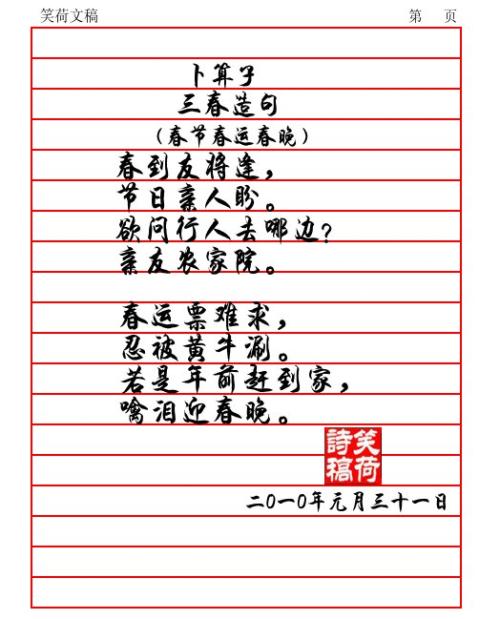 笑荷文稿 第 页
卜算子
三春造句
(春节春运春晚)
春到友将逢，
节日亲人盼。
欲问行人去哪边?
亲友农家院。
春运票难求，
忍被黄牛涮。
若是年前赶到家，
噙泪迎春晚。
笑荷
詩稿
二〇一〇年元月三十一日